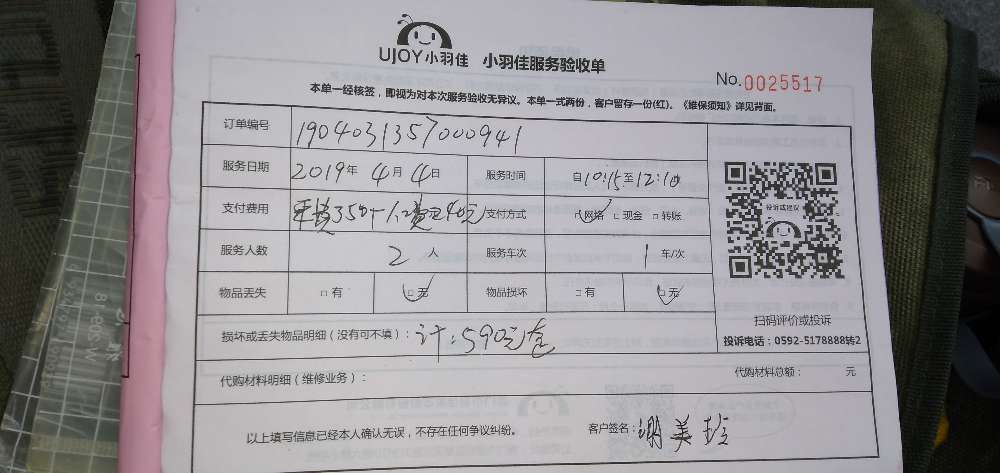 UJOY小羽佳 小羽佳服务验收单
No. 0025517
本单一经核签，即视为对本次服务验收无异议。本单一式两份，客户留存一份(红)。《维保须知》详见背面。
订单编号 1904031357000941
服务日期 2019年 4月 4日 服务时间 自10:15至12:10
支付费用 车费350+人工费240元 支付方式 ☑网络 □现金 □转账
服务人数 2人 服务车次 1车/次
物品丢失 □有 ☑无 物品损坏 □有 ☑无
投诉或建议
扫码评价或投诉
投诉电话：0592-5178888转2
损坏或丢失物品明细（没有可不填）： 计：590元
代购材料明细（维修业务）： 代购材料总额： 元
以上填写信息已经本人确认无误，不存在任何争议纠纷。 客户签名： 美